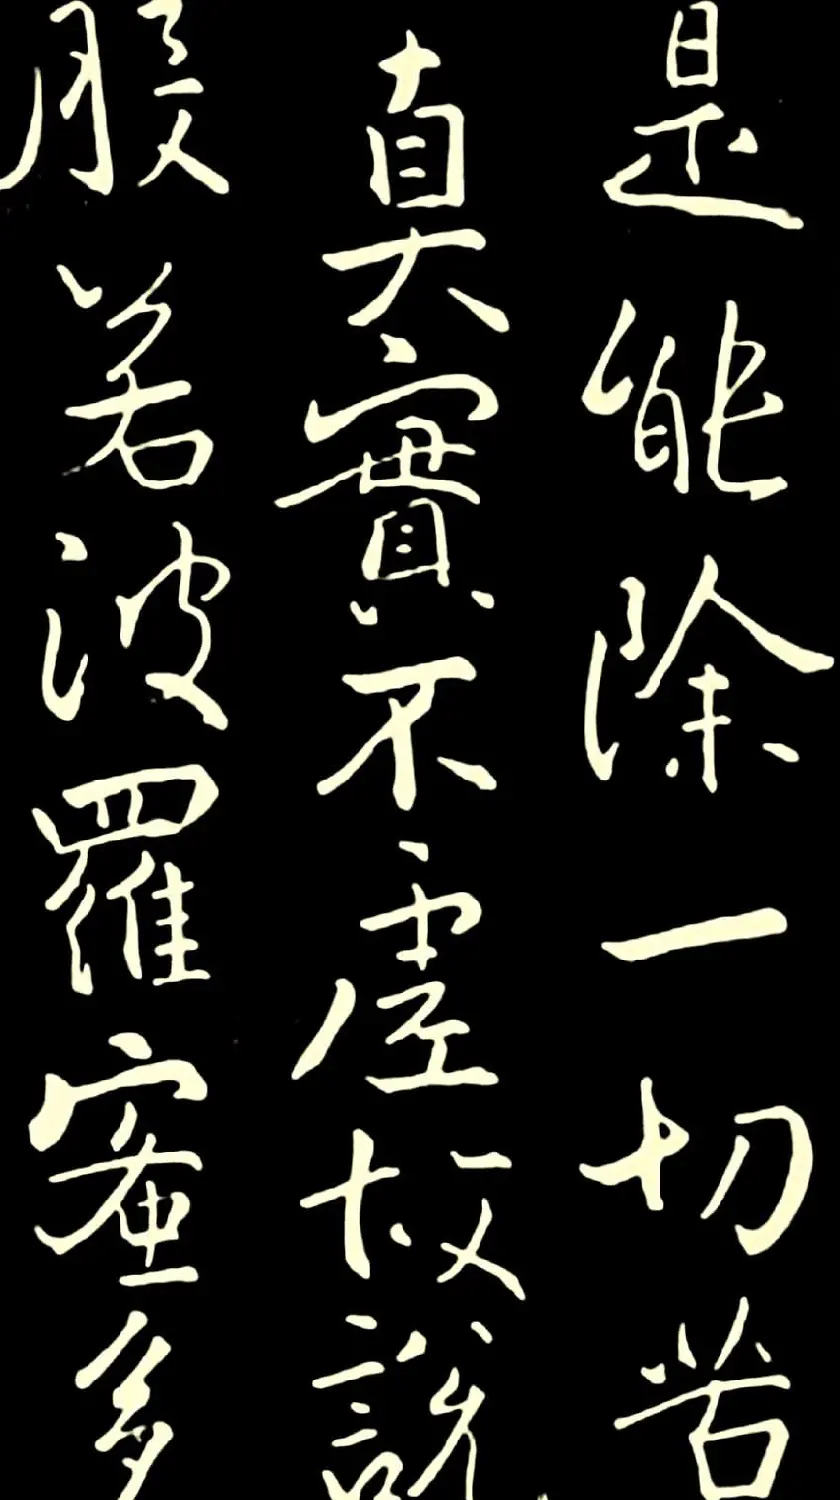 是能除一切苦
真實不虛故說
般若波羅蜜多